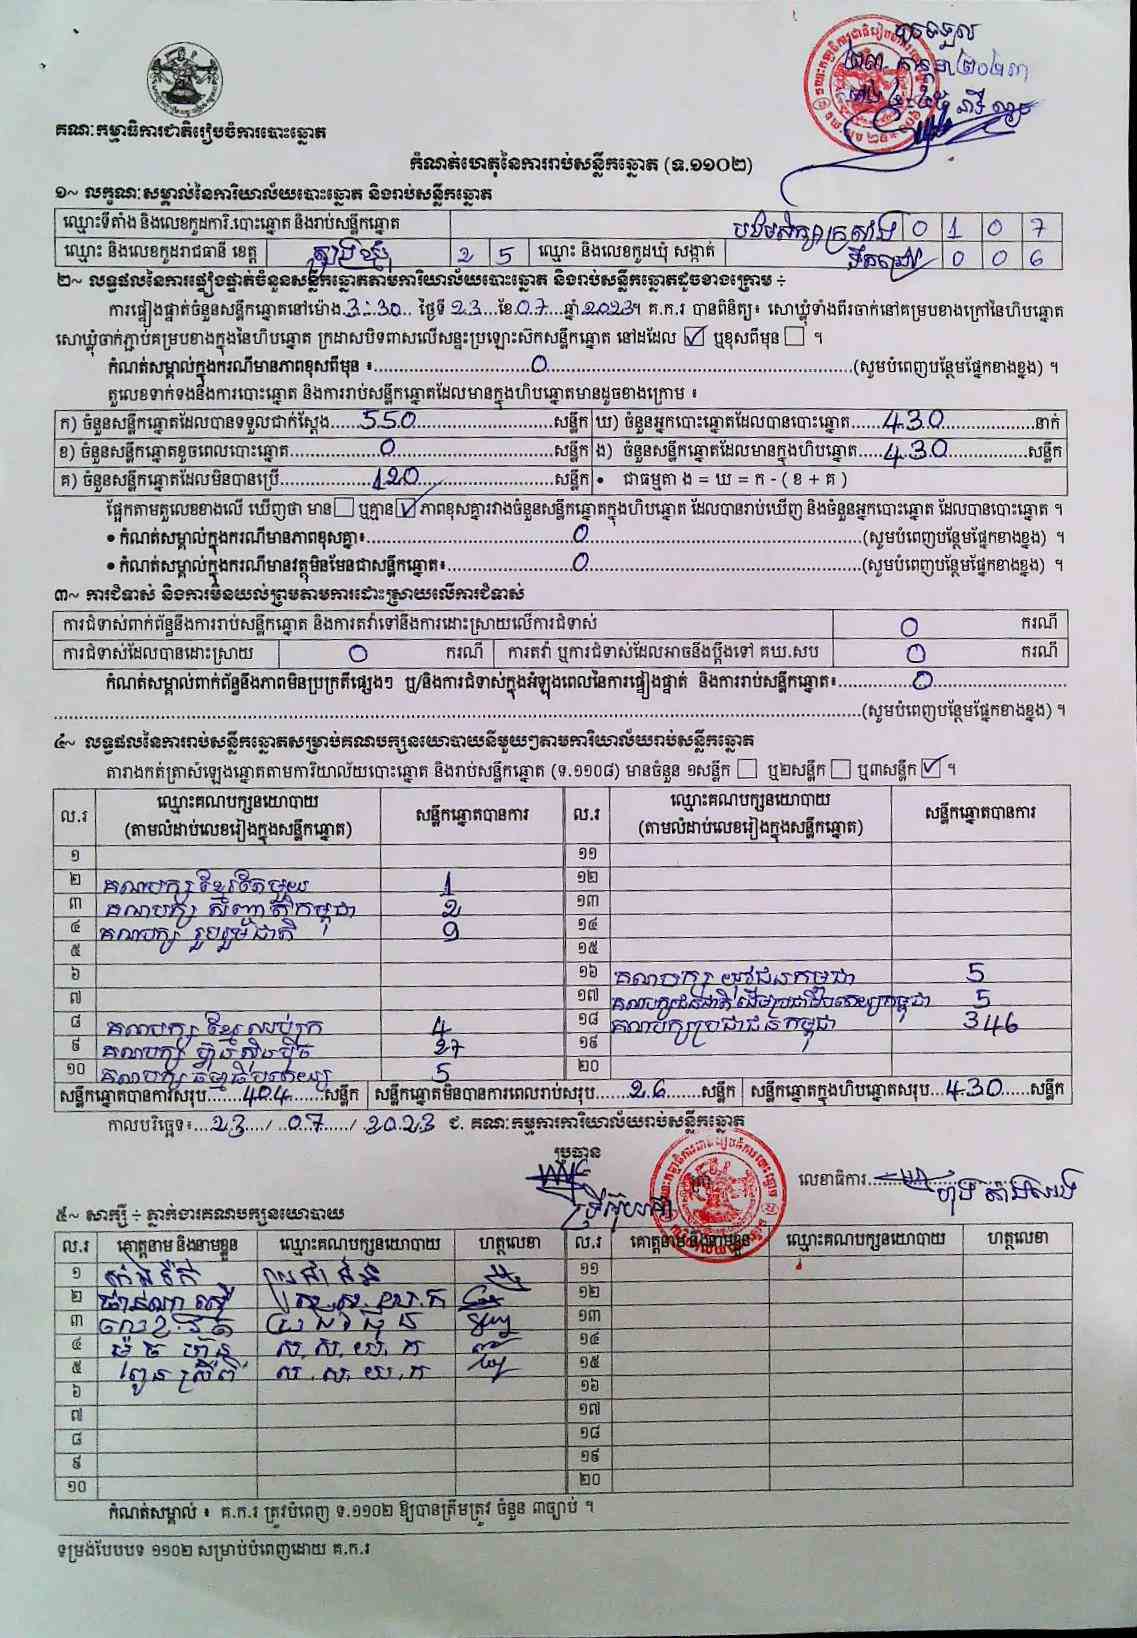 គណៈកម្មាធិការជាតិរៀបចំការបោះឆ្នោត
កំណត់ហេតុនៃការរាប់សន្លឹកឆ្នោត (ទ.១១០២)
១~ លក្ខណៈសម្គាល់នៃការិយាល័យបោះឆ្នោត និងរាប់សន្លឹកឆ្នោត
ឈ្មោះទីតាំង និងលេខកូដការិ.បោះឆ្នោត និងរាប់សន្លឹកឆ្នោត 0 1 0 7
ឈ្មោះ និងលេខកូដរាជធានី ខេត្ត ត្បូងឃ្មុំ 2 5 ឈ្មោះ និងលេខកូដឃុំ សង្កាត់ 0 0 6
២~ លទ្ធផលនៃការផ្ទៀងផ្ទាត់ចំនួនសន្លឹកឆ្នោតតាមការិយាល័យបោះឆ្នោត និងរាប់សន្លឹកឆ្នោតដូចខាងក្រោម ÷
ការផ្ទៀងផ្ទាត់ចំនួនសន្លឹកឆ្នោតនៅម៉ោង 3:30 ថ្ងៃទី 23 ខែ 07 ឆ្នាំ 2023។ គ.ក.រ បានពិនិត្យ៖ សោឃ្លុំទាំងពីរចាក់នៅគម្របខាងក្រៅនៃហិបឆ្នោត
សោឃ្លុំចាក់ភ្ជាប់គម្របខាងក្នុងនៃហិបឆ្នោត ក្រដាសបិទពាសលើសន្ទះប្រឡោះស៊កសន្លឹកឆ្នោត នៅដដែល ☑ ឬខុសពីមុន ☐ ។
កំណត់សម្គាល់ក្នុងករណីមានភាពខុសពីមុន ៖ 0 (សូមបំពេញបន្ថែមផ្នែកខាងខ្នង) ។
តួលេខទាក់ទងនឹងការបោះឆ្នោត និងការរាប់សន្លឹកឆ្នោតដែលមានក្នុងហិបឆ្នោតមានដូចខាងក្រោម ៖
ក) ចំនួនសន្លឹកឆ្នោតដែលបានទទួលជាក់ស្តែង 550 សន្លឹក ឃ) ចំនួនអ្នកបោះឆ្នោតដែលបានបោះឆ្នោត 430 នាក់
ខ) ចំនួនសន្លឹកឆ្នោតខូចពេលបោះឆ្នោត 0 សន្លឹក ង) ចំនួនសន្លឹកឆ្នោតដែលមានក្នុងហិបឆ្នោត 430 សន្លឹក
គ) ចំនួនសន្លឹកឆ្នោតដែលមិនបានប្រើ 120 សន្លឹក • ជាធម្មតា ង = ឃ = ក - ( ខ + គ )
ផ្អែកតាមតួលេខខាងលើ ឃើញថា មាន ☐ ឬគ្មាន ☑ ភាពខុសគ្នារវាងចំនួនសន្លឹកឆ្នោតក្នុងហិបឆ្នោត ដែលបានរាប់ឃើញ និងចំនួនអ្នកបោះឆ្នោត ដែលបានបោះឆ្នោត ។
• កំណត់សម្គាល់ក្នុងករណីមានភាពខុសគ្នា៖ 0 (សូមបំពេញបន្ថែមផ្នែកខាងខ្នង) ។
• កំណត់សម្គាល់ក្នុងករណីមានវត្ថុមិនមែនជាសន្លឹកឆ្នោត៖ 0 (សូមបំពេញបន្ថែមផ្នែកខាងខ្នង) ។
៣~ ការជំទាស់ និងការមិនយល់ព្រមតាមការដោះស្រាយលើការជំទាស់
ការជំទាស់ពាក់ព័ន្ធនឹងការរាប់សន្លឹកឆ្នោត និងការតវ៉ាទៅនឹងការដោះស្រាយលើការជំទាស់ 0 ករណី
ការជំទាស់ដែលបានដោះស្រាយ 0 ករណី ការតវ៉ា ឬការជំទាស់ដែលអាចនឹងប្តឹងទៅ គឃ.សប 0 ករណី
កំណត់សម្គាល់ពាក់ព័ន្ធនឹងភាពមិនប្រក្រតីផ្សេងៗ ឬ/និងការជំទាស់ក្នុងអំឡុងពេលនៃការផ្ទៀងផ្ទាត់ និងការរាប់សន្លឹកឆ្នោត៖ 0
(សូមបំពេញបន្ថែមផ្នែកខាងខ្នង) ។
៤~ លទ្ធផលនៃការរាប់សន្លឹកឆ្នោតសម្រាប់គណបក្សនយោបាយនីមួយៗតាមការិយាល័យរាប់សន្លឹកឆ្នោត
តារាងកត់ត្រាសំឡេងឆ្នោតតាមការិយាល័យបោះឆ្នោត និងរាប់សន្លឹកឆ្នោត (ទ.១១០៨) មានចំនួន ១សន្លឹក ☐ ឬ២សន្លឹក ☐ ឬ៣សន្លឹក ☑ ។
ល.រ ឈ្មោះគណបក្សនយោបាយ (តាមលំដាប់លេខរៀងក្នុងសន្លឹកឆ្នោត) សន្លឹកឆ្នោតបានការ ល.រ ឈ្មោះគណបក្សនយោបាយ (តាមលំដាប់លេខរៀងក្នុងសន្លឹកឆ្នោត) សន្លឹកឆ្នោតបានការ
១ ១១
២ គណបក្ស ខ្មែរតែមួយ 1 ១២
៣ គណបក្ស សញ្ជាតិកម្ពុជា 2 ១៣
៤ គណបក្ស រួបរួមជាតិ 9 ១៤
៥ ១៥
៦ ១៦ គណបក្ស យុវជនកម្ពុជា 5
៧ ១៧ 5
៨ គណបក្ស ខ្មែរឈប់ក្រ 4 ១៨ គណបក្សប្រជាជនកម្ពុជា 346
៩ គណបក្ស ហ៊្វុនស៊ិនប៉ិច 27 ១៩
១០ គណបក្ស ធម្មាធិបតេយ្យ 5 ២០
សន្លឹកឆ្នោតបានការសរុប 404 សន្លឹក សន្លឹកឆ្នោតមិនបានការពេលរាប់សរុប 26 សន្លឹក សន្លឹកឆ្នោតក្នុងហិបឆ្នោតសរុប 430 សន្លឹក
កាលបរិច្ឆេទ៖ 23 / 07 / 2023 ជ. គណៈកម្មការការិយាល័យរាប់សន្លឹកឆ្នោត
ប្រធាន
លេខាធិការ
៥~ សាក្សី ÷ ភ្នាក់ងារគណបក្សនយោបាយ
ល.រ គោត្តនាម និងនាមខ្លួន ឈ្មោះគណបក្សនយោបាយ ហត្ថលេខា ល.រ គោត្តនាម និងនាមខ្លួន ឈ្មោះគណបក្សនយោបាយ ហត្ថលេខា
១ ប្រជាជន ១១
២ ១២
៣ ១៣
៤ ស.ស.យ.ក ១៤
៥ ស.ស.យ.ក ១៥
៦ ១៦
៧ ១៧
៨ ១៨
៩ ១៩
១០ ២០
កំណត់សម្គាល់ ៖ គ.ក.រ ត្រូវបំពេញ ទ.១១០២ ឱ្យបានត្រឹមត្រូវ ចំនួន ៣ច្បាប់ ។
ទម្រង់បែបបទ ១១០២ សម្រាប់បំពេញដោយ គ.ក.រ